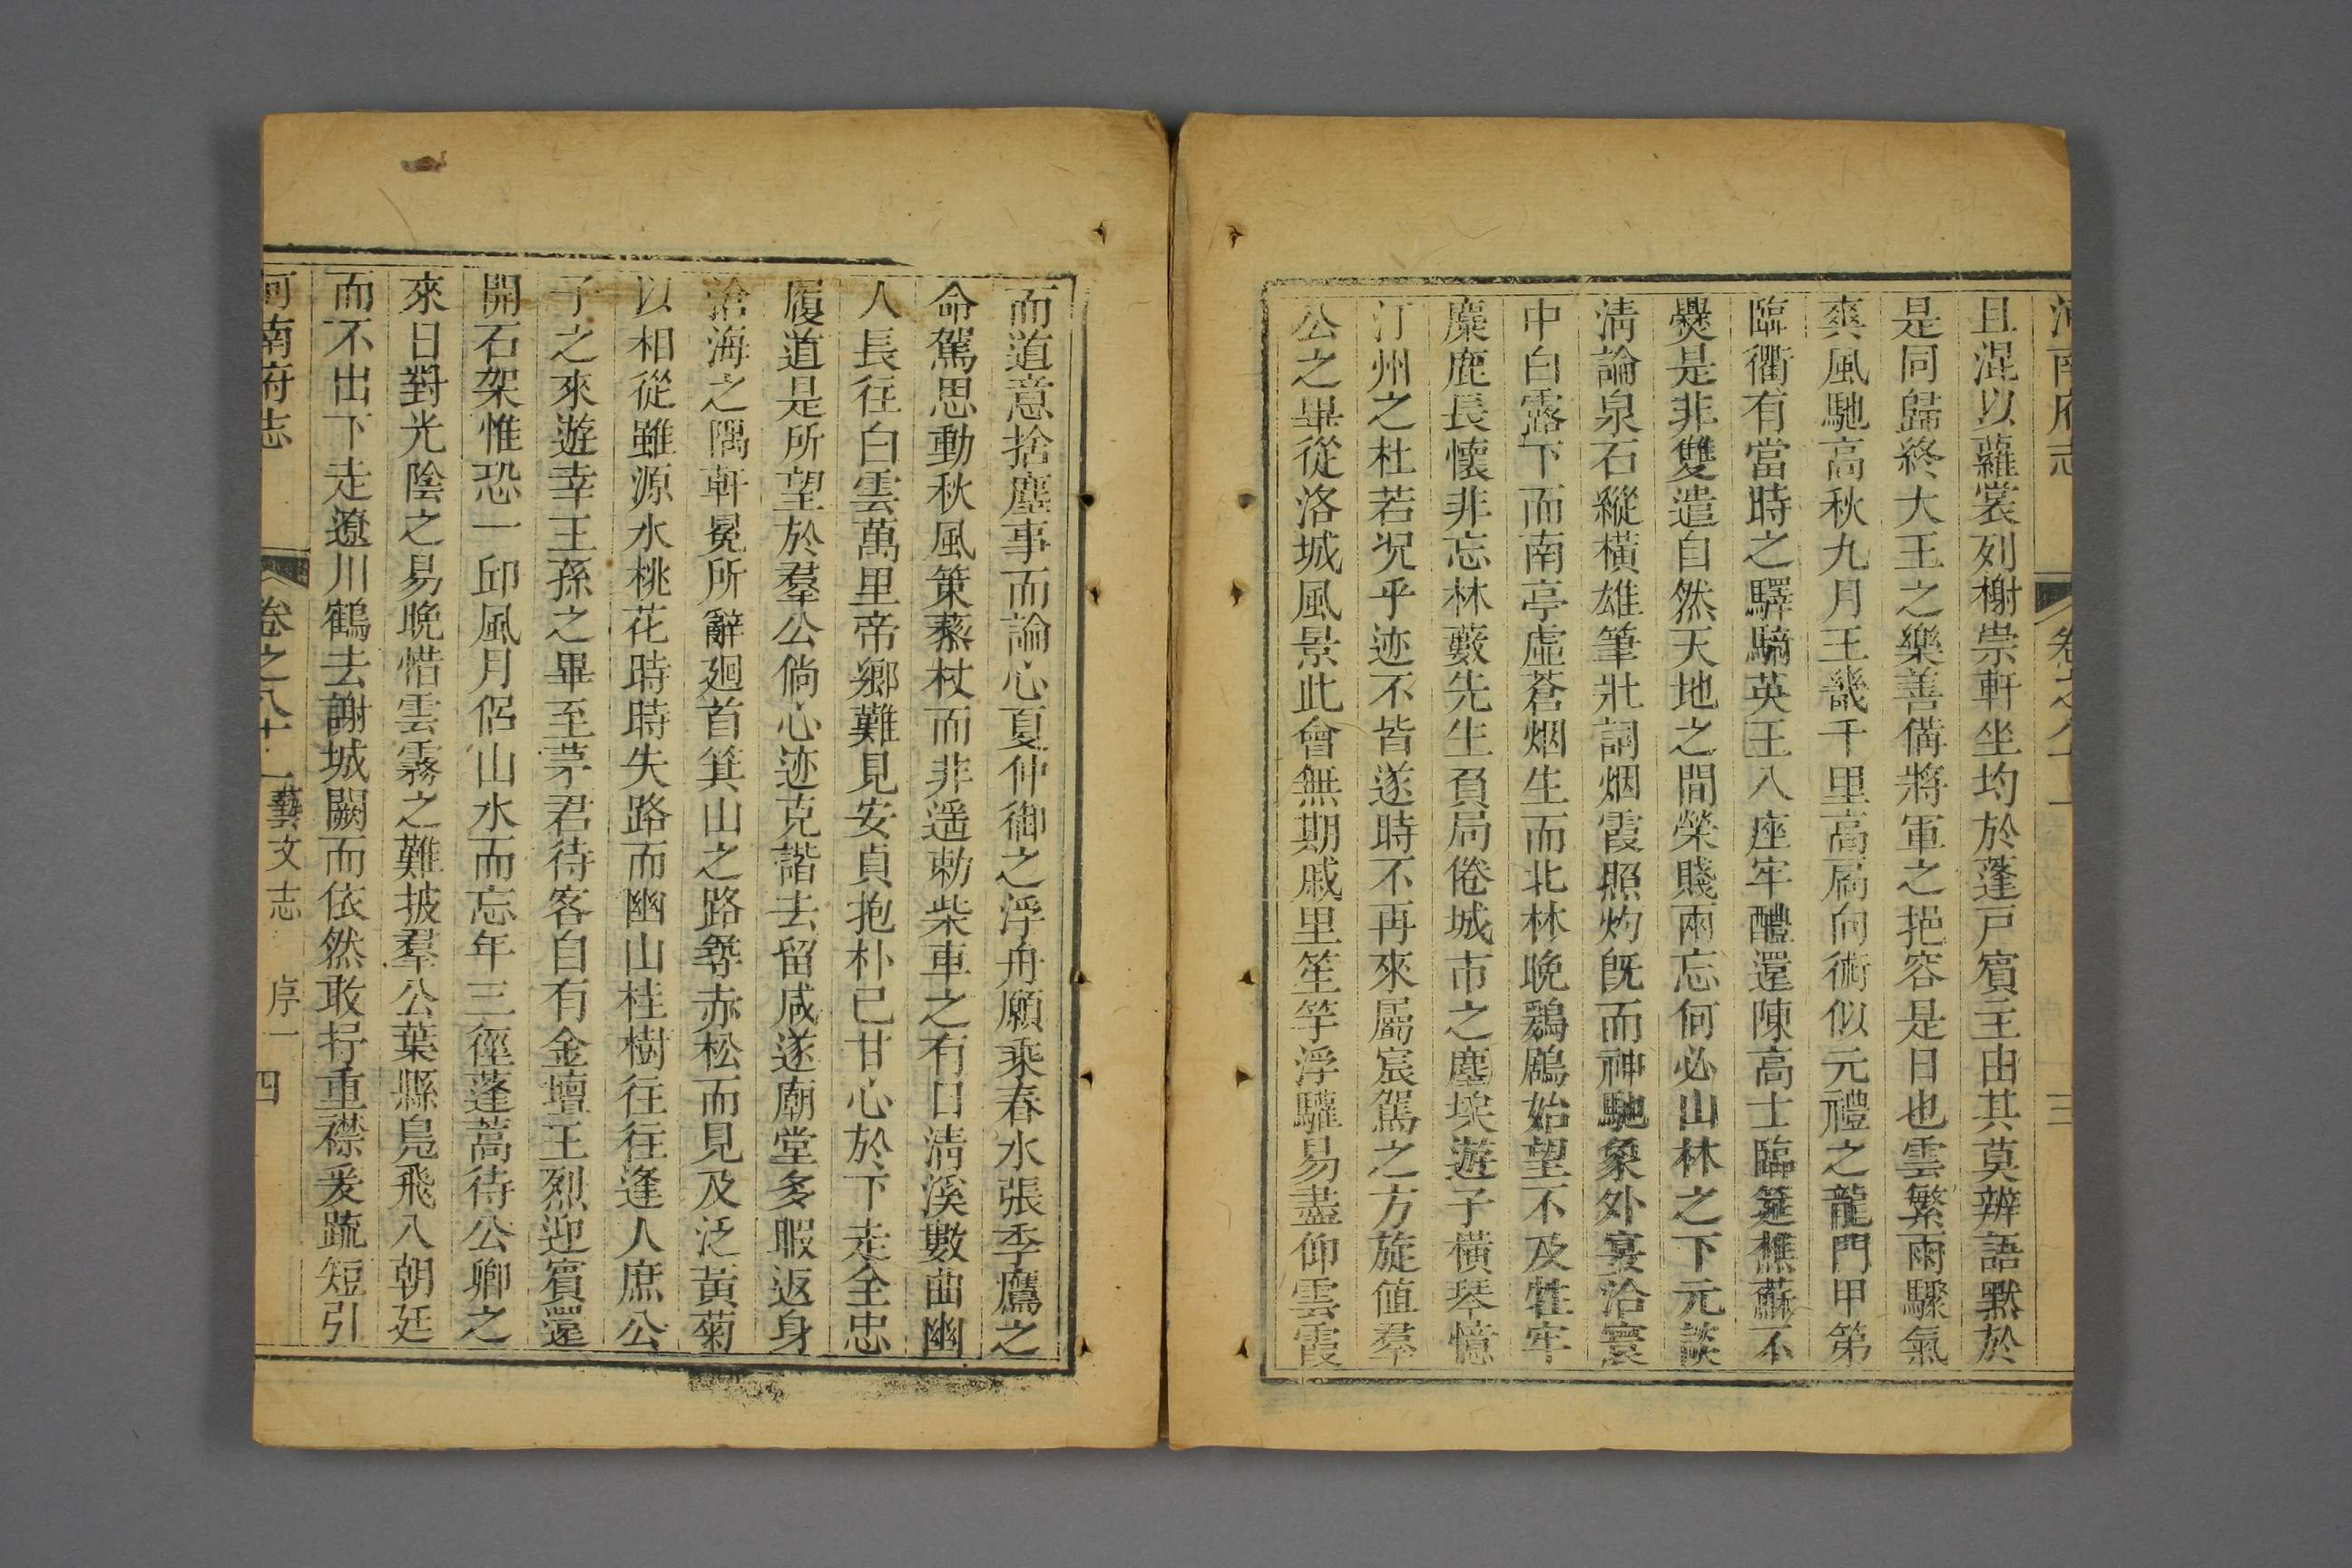 河南府志 卷之八十一 三
且混以蘿裳列榭崇軒坐均於蓬戸賔主由其莫辨語黙於
是同歸終大王之樂善備將軍之挹容是日也雲繁雨驟氣
爽風馳高秋九月王畿千里高扃向術似元禮之龍門甲第
臨衢有當時之驛騎英王八座牢醴還陳高士臨筵樵蘇不
爨是非雙遣自然天地之間榮賤兩忘何必山林之下元談
清論泉石縱橫雄筆壯詞烟霞照灼旣而神馳象外宴洽寰
中白露下而南亭虛蒼烟生而北林晚鷄鴎始望不及牲牢
麋鹿長懷非忘林藪先生負局倦城市之塵埃遊子橫琴憶
汀州之杜若况乎迹不皆遂時不再來屬宸駕之方旋值羣
公之畢從洛城風景此會無期戚里笙竽浮驩易盡仰雲霞
而道意捨塵事而論心夏仲御之浮舟願乘春水張季鷹之
命駕思動秋風策藜杖而非遥勅柴車之有日清溪數曲幽
人長往白雲萬里帝鄉難見安貞抱朴已甘心於下走全忠
履道是所望於羣公倘心迹克諧去留咸遂廟堂多暇返身
滄海之隅軒冕所辭廻首箕山之路尋赤松而見及泛黃菊
以相從雖源水桃花時時失路而幽山桂樹往往逢人庶公
子之來遊幸王孫之畢至茅君待客自有金壇王烈迎賔還
開石架惟恐一邱風月侶山水而忘年三徑蓬蒿待公卿之
來日對光陰之易晚惜雲霧之難披羣公葉縣鳧飛入朝廷
而不出下走遼川鶴去謝城闕而依然敢抒重襟爰疏短引
河南府志 卷之八十一 藝文志 序一 四